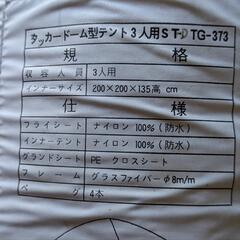 タッカードーム型テント3人用ST-D TG-373
規格
収容人員 3人用
インナーサイズ 200×200×135高 cm
仕様
フライシート ナイロン 100%(防水)
インナーテント ナイロン 100%(防水)
グランドシート PE クロスシート
フレーム グラスファイバーφ8m/m
ペグ 4本